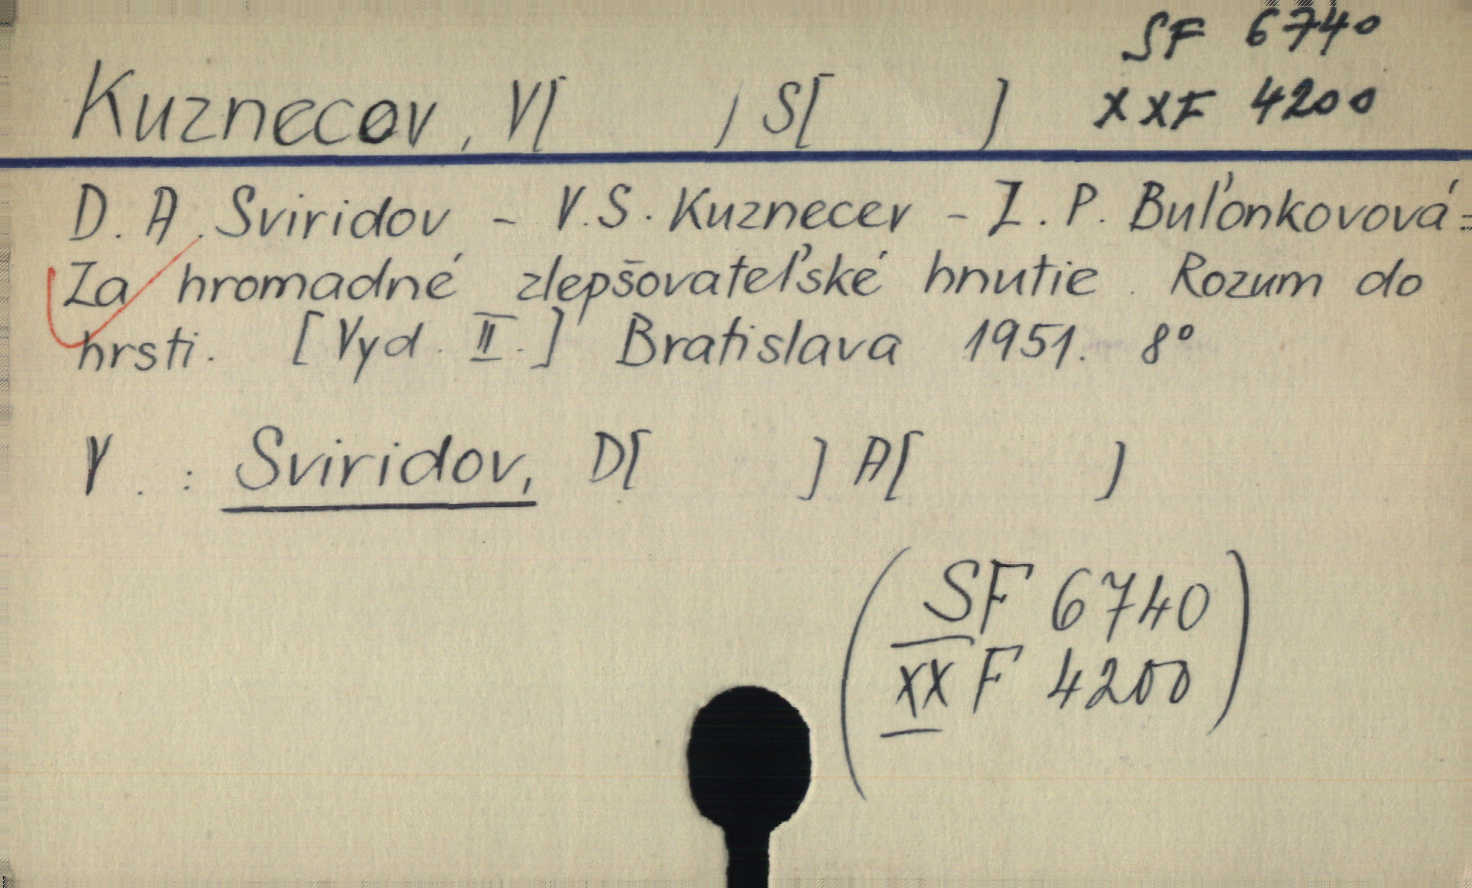 SF 6740
Kuznecov, V[ ] S[ ] XXF 4200
D. A. Sviridov - V. S. Kuznecev - I. P. Buľonkovová:
Za hromadné zlepšovateľské hnutie. Rozum do
hrsti. [Vyd. II.] Bratislava 1951. 8°
V. : Sviridov, D[ ] A[ ]
(SF 6740
XXF 4200)